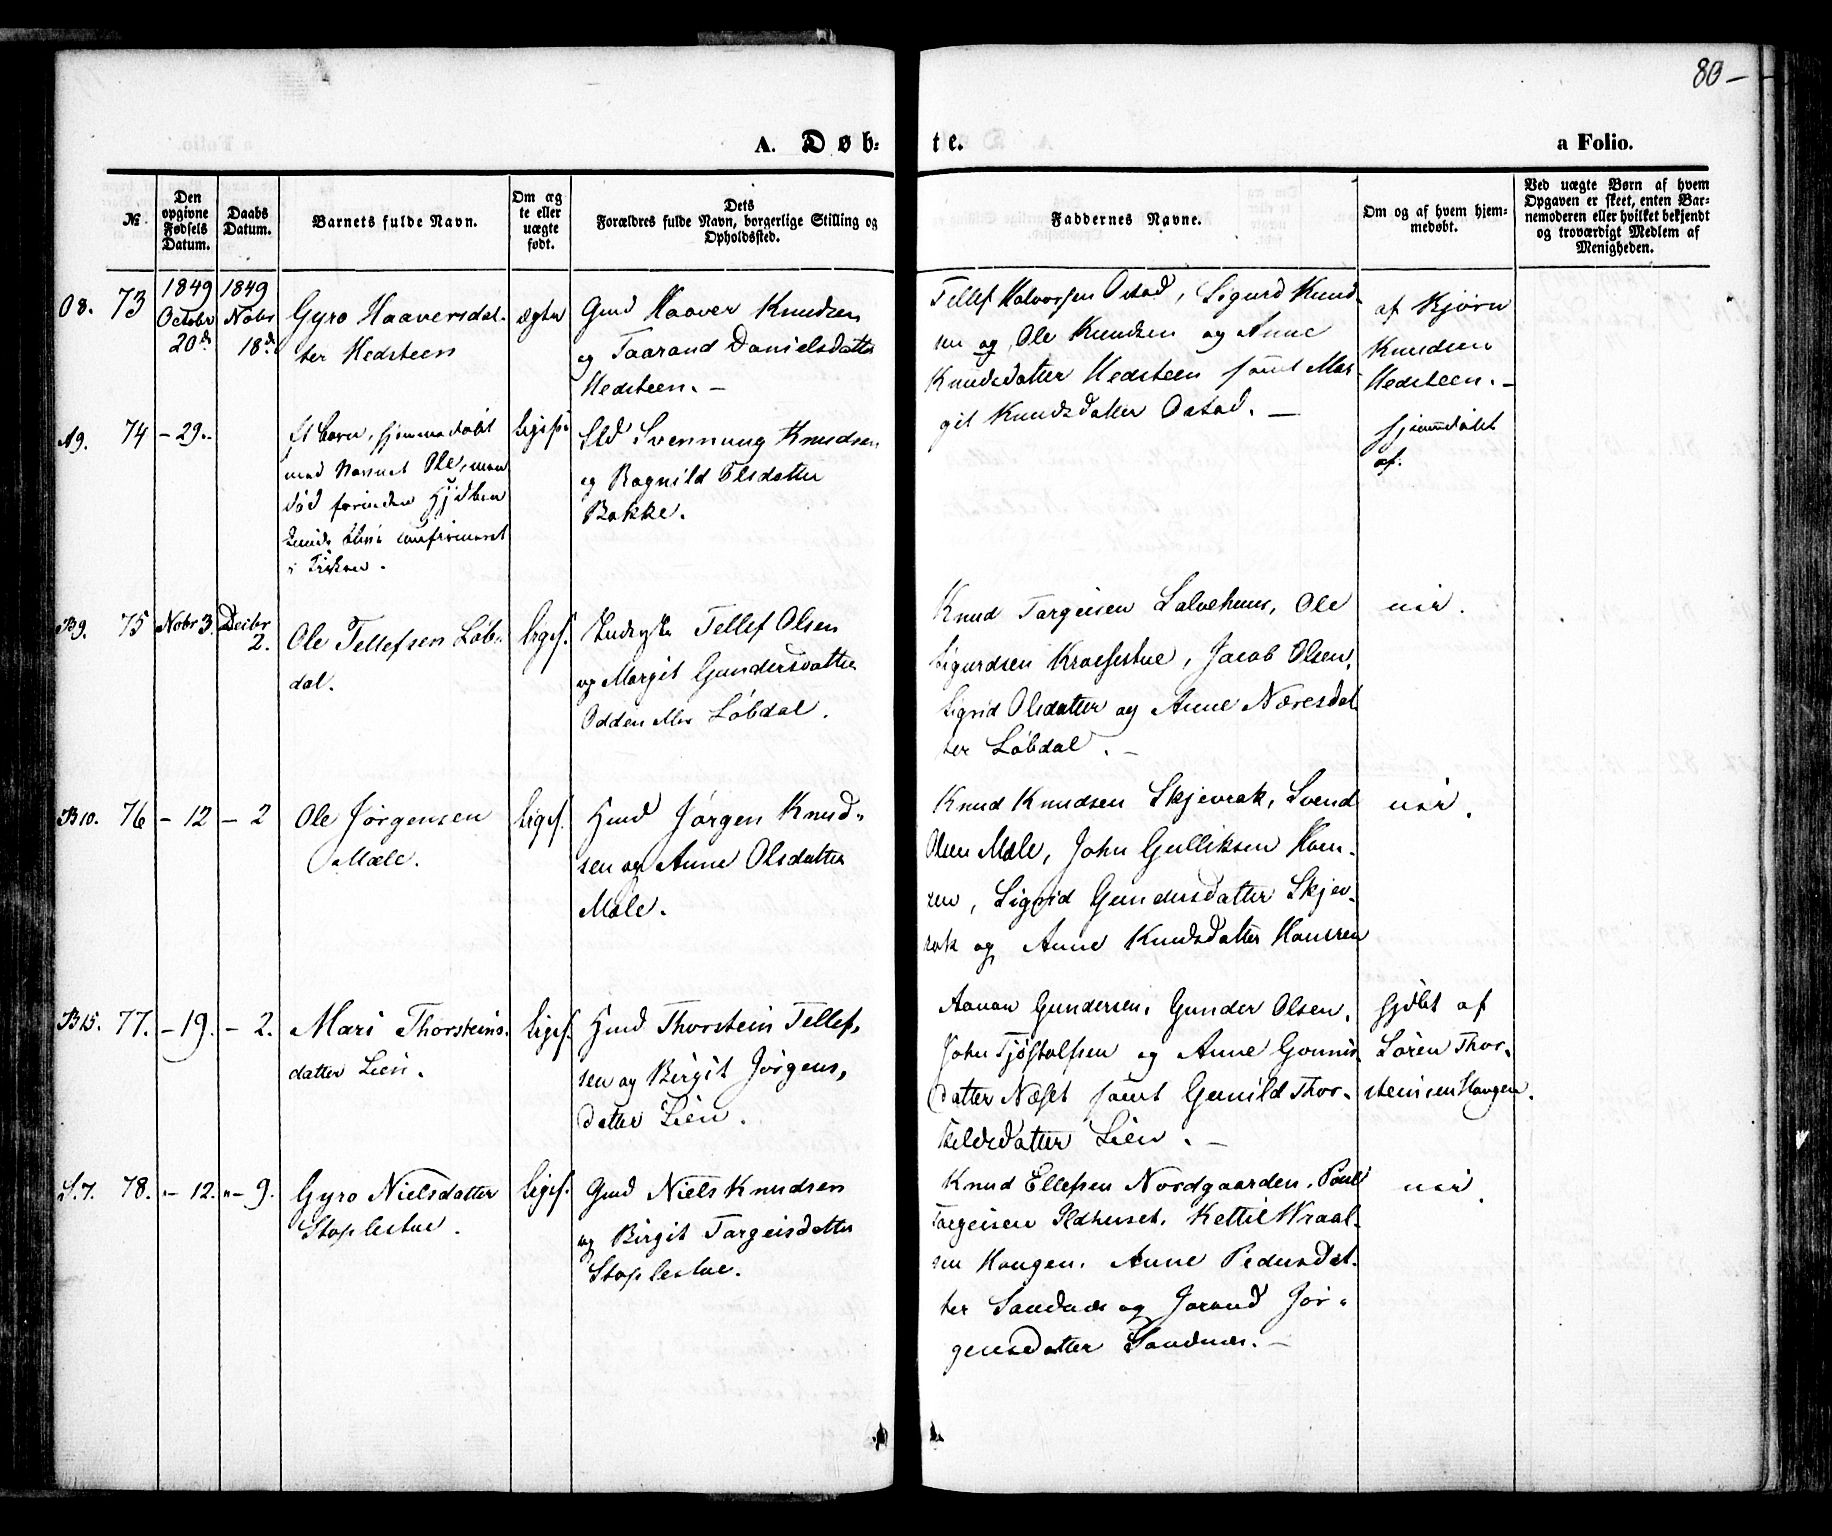 80-
A. Døbte. a Folio.
№
Den opgivne Fødsels Datum.
Daabs Datum.
Barnets fulde Navn.
Om ægte eller uægte født.
Dets Forældres fulde Navn, borgerlige Stilling og Opholdssted.
Faddernes Navne.
Om og af hvem hjemmedøbt.
Ved uægte Børn af hvem Opgaven er skeet, enten Barnemoderen eller hvilket bekjendt og troværdigt Medlem af Menigheden.
O 8. 73
1849
Octobr
20d
1849
Nobr
18d
Gyro Haaversdat-
ter Hedsteen
ægte
Gmd Haaver Knudsen
og Taarand Danielsdatter
Hedsteen. -
Tellef Halvorsen Ostad, Sigurd Knud-
sen og Ole Knudsen og Anne
Knudsdatter Hedsteen samt Mar-
git Knudsdatter Ostad. -
af Kjørn
Knudsen
Hedsteen. -
A9. 74 - 29..
et barn, hjemmedøbt
med Navnet Ole, men
død forinden
blive confirmeret
i Kirken.
Svennung Knudsen
og Ragnild Olsdatter
Bakke.
hjemmdøbt
af:
B9. 75 Nobr 3. Decbr
2.
Ole Tellefsen Løb-
dal.
liges.
Tellef Olsen
og Margit Gundersdatter
Odden Løbdal.
Knud Targeisen Ole
Sigurdsen Jacob Olsen,
Sigrid Olsdatter og Anne Næresdat-
ter Løbdal. -
nei.
B10. 76 - 12 - 2
Ole Jørgensen
Mæle.
ligef.
Hmd Jørgen Knud-
sen og Anne Olsdatter
Mæle.
Knud Knudsen Skjevrak, Svend
Olsen Mæle, John Gulliksen Hoen-
ren, Sigrid Gundersdatter Skjev-
rak og Anne Knudsdatter
nei.
B15. 77. - 19. - 2.
Mari Thorsteins-
datter Lien.
ligef.
Hmd Thorstein Tellef-
sen og Birgit Jørgens-
datter Lien.
Aanon Gundersen, Gunder Olsen,
John Tjøstolfsen og Anne
datter Næset samt Gunild Thor-
kildsdatter Lien. -
hjdbt af
Søren Thor-
steinsen Haugen.
S.7. 78. - 12. - 9.
Gyro Nielsdatter
Staplestue.
ligef.
Gmd Niels Knudsen
og Birgit Targeisdatter
Staplestue.
Knud Ellefsen Nordgaarden, Poul
Targeisen Ildhuset, Kettil Wraal-
sen Haugen, Anne Pedersdat-
ter Sandnæs og Jorand Jør-
gensdatter Sandnæs. -
nei.